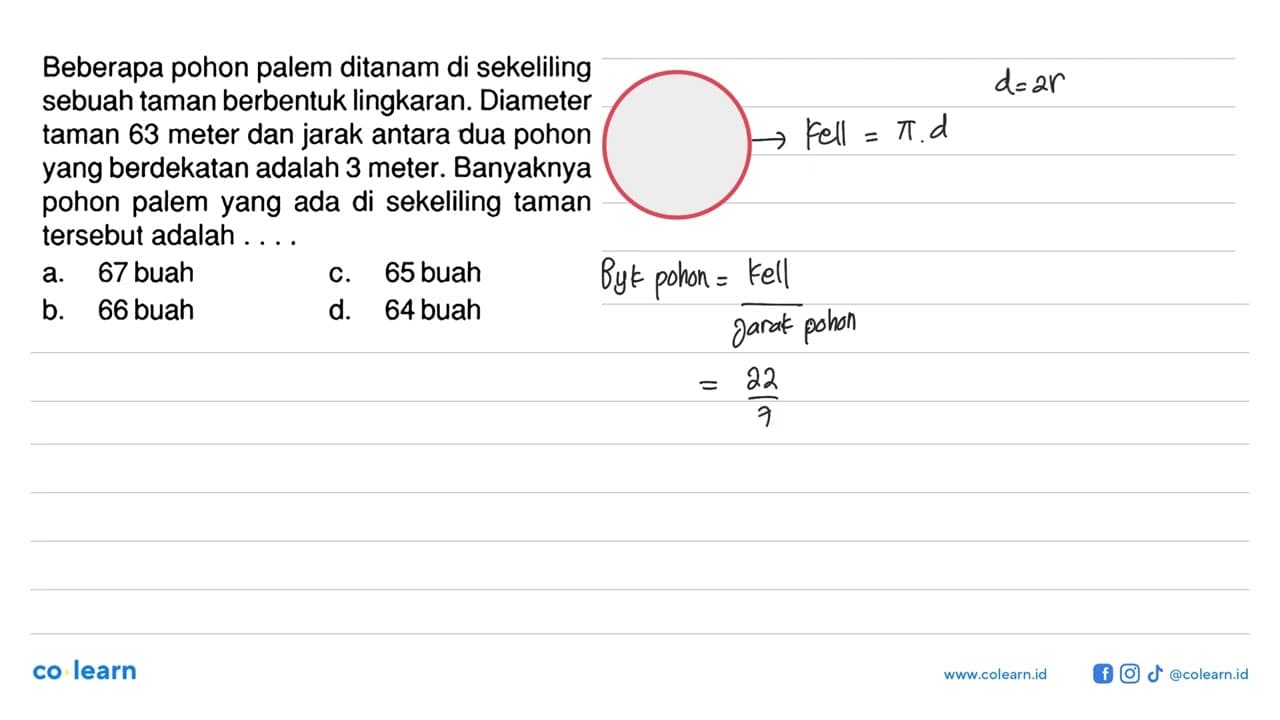 Beberapa pohon palem ditanam di sekeliling
sebuah taman berbentuk lingkaran. Diameter
taman 63 meter dan jarak antara dua pohon
yang berdekatan adalah 3 meter. Banyaknya
pohon palem yang ada di sekeliling taman
tersebut adalah . . . .
a. 67 buah c. 65 buah
b. 66 buah d. 64 buah
d = 2r
→ kell = π . d
Byk pohon = kell
jarak pohon
= 22
7
co learn
www.colearn.id
@colearn.id